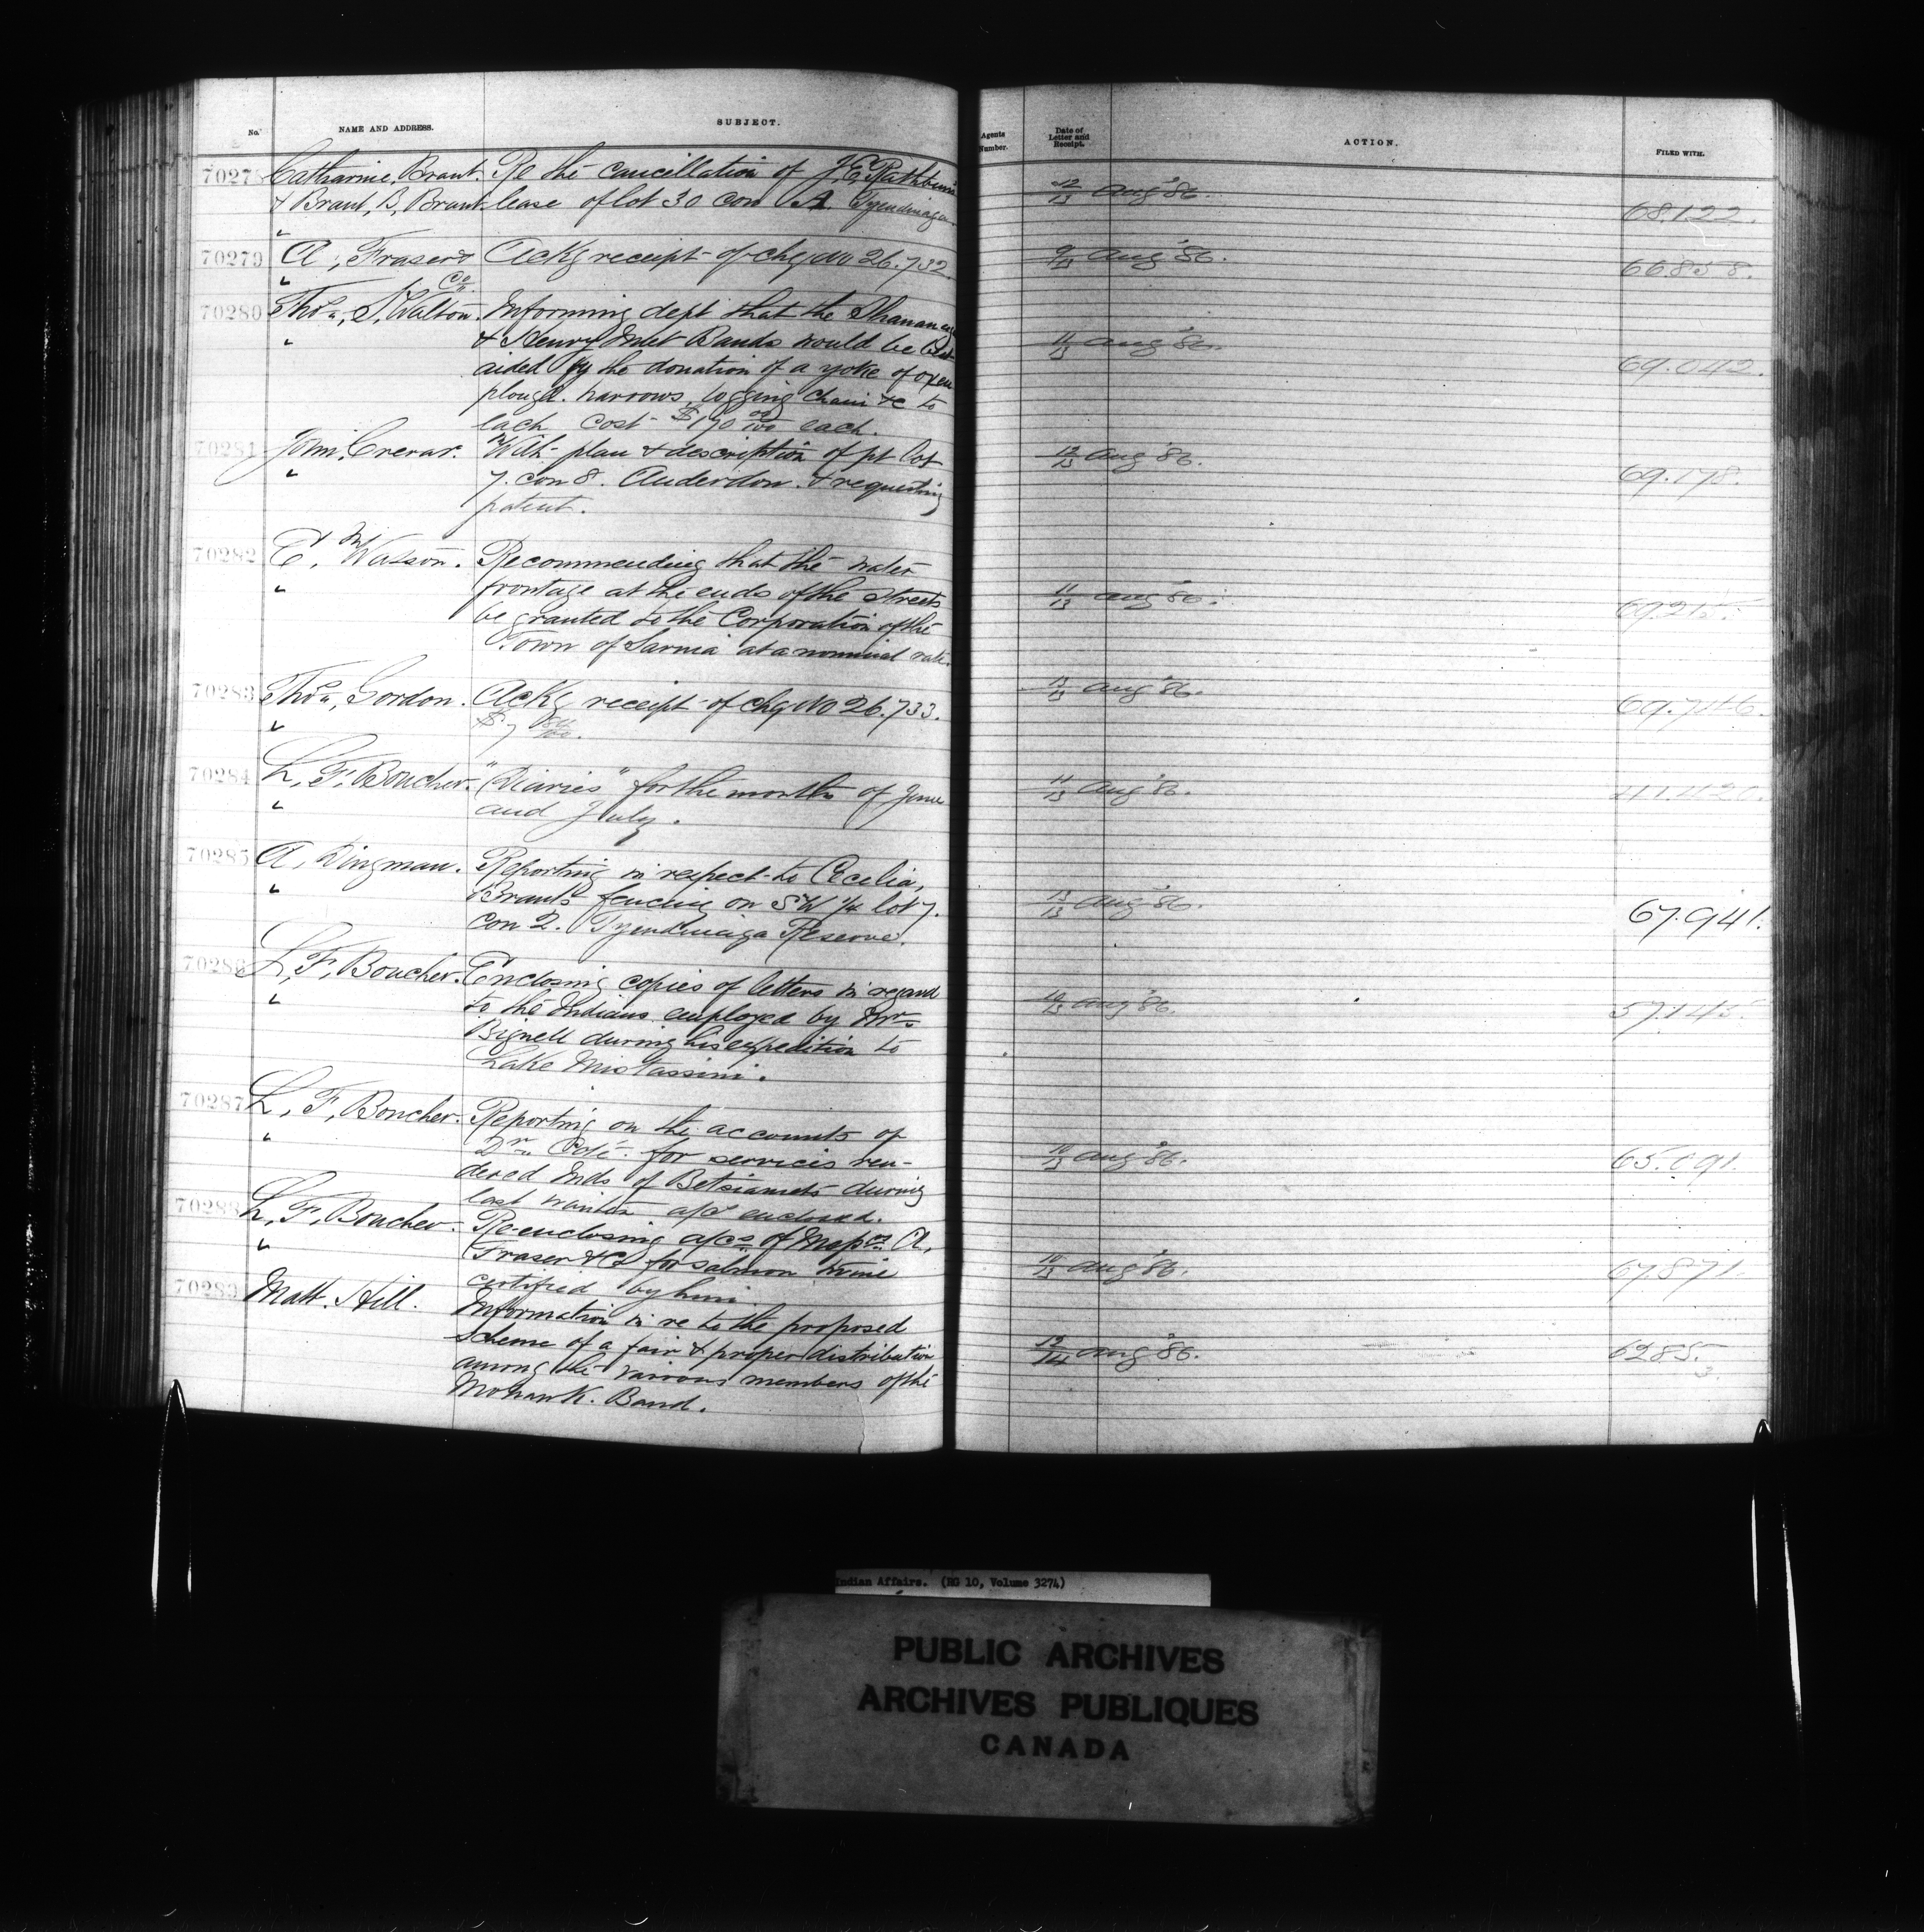 No. NAME AND ADDRESS. SUBJECT. Agents Number. Date of Letter and Receipt. ACTION. FILED WITH.
7027 Catharine, Brant. Re the cancillation of J, E, Rathbun's 12/13 Aug '86. 68.122.
& Brant, B, Brant lease of lot 30 con A. Tyendinaga
70279 A, Fraser & Ackg receipt of chq No 26.732 9/13 Aug '86. 66858.
Co
70280 Thos, S, Walton. Informing dept that the Shanawaga
& Henry Inlet Bands would be best 11/13 Aug '86.
aided by the donation of a yoke of oxen 69.042.
plough. harrows, logging chain &c to
each cost $170 00/100 each.
70281 John, Crerar. With plan & description of pt lot 12/13 Aug '86.
7. con 8. Anderdon. & requesting 69.178.
patent.
70282 E, M Watson. Recommending that the water
frontage at the ends of the streets 11/13 Aug '86. 69215.
be granted to the Corporation of the
Town of Sarnia at a nominal rate.
70283 Thos, Gordon. Ackg receipt of chq No 26.733. 13/13 Aug '86. 69.746.
$7
70284 L, F, Boucher. "Diaries" for the months of June 11/13 Aug '86. 41.420.
and July.
70285 A, Dingman. Reporting in respect to Cecelia,
Brants fencing on SW 1/4 lot 7. 13/13 Aug '86. 67.941.
con 2. Tyendinaga Reserve.
7028 L, F, Boucher. Enclosing copies of letters in regard
to the Indians employed by Mr 10/13 Aug '86. 57.145
Bignell during his expedition to
Lake Mistassini.
70287 L, F, Boucher. Reporting on the accounts of
Dr Coté for services ren- 10/13 Aug '86. 65.091.
dered Inds of Betsiamits during
last winter a/cs enclosed.
7028 L, F, Boucher. Re-enclosing a/cs of Messrs A,
Fraser & Co for salmon twine 10/13 Aug '86. 67.871.
certified by him
70289 Matt. Hill. Information in re to the proposed
scheme of a fair & proper distribution 12/14 Aug '86. 6285.
among the various members of the 3.
Mohawk. Band.
Indian Affairs. (RG 10, Volume 3274)
PUBLIC ARCHIVES
ARCHIVES PUBLIQUES
CANADA